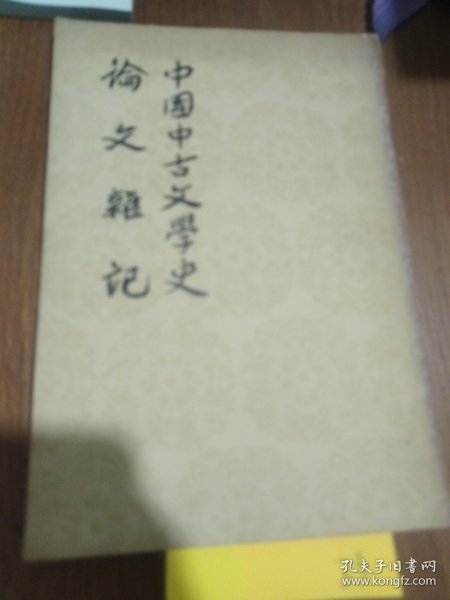 中国中古文學史
论文雜记
孔夫子旧书网
www.kongfz.com